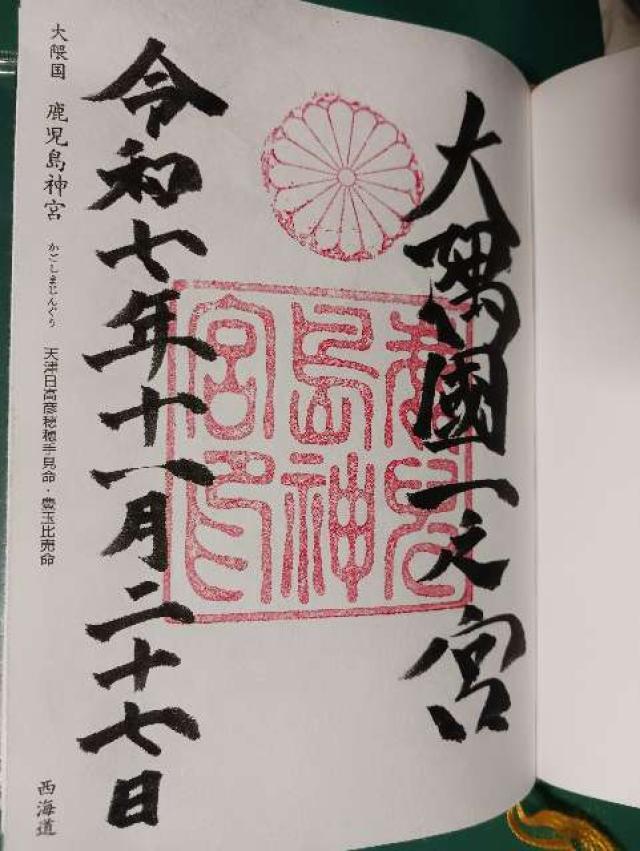 大隅國一之宮
鹿兒島神宮印
令和七年十一月二十七日
大隈国 鹿児島神宮 かごしまじんぐう 天津日高彦穂穂手見命・豊玉比売命
西海道